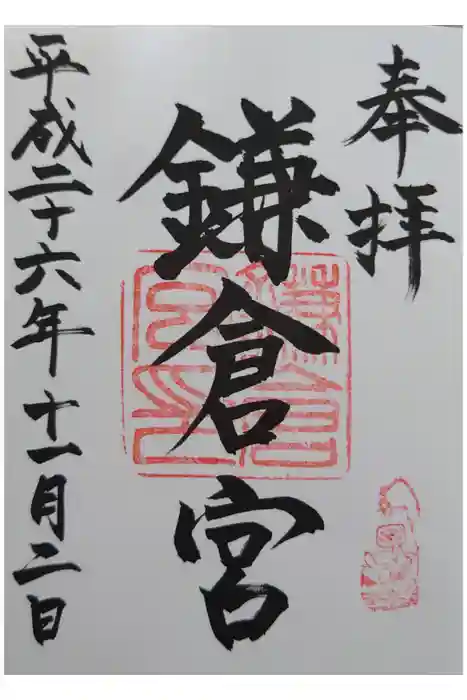 奉拝
鎌倉宮
平成二十六年十一月二日